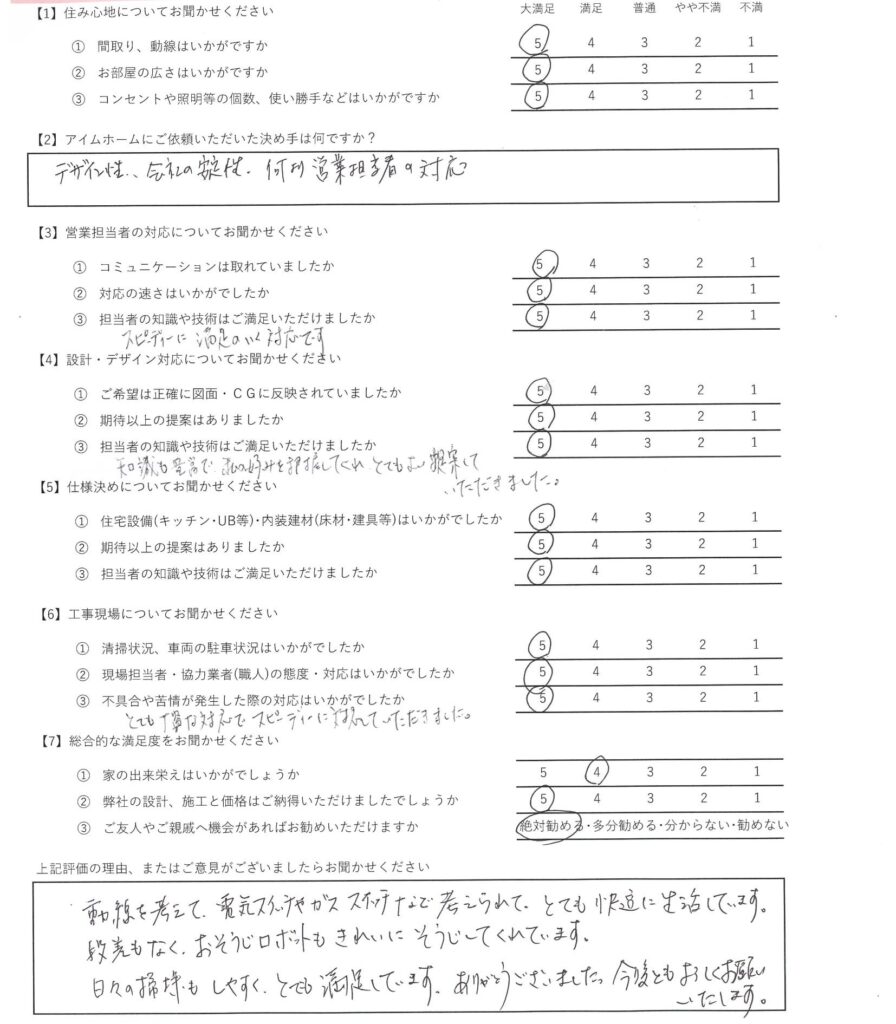 【1】住み心地についてお聞かせください 大満足 満足 普通 やや不満 不満
① 間取り、動線はいかがですか 5 4 3 2 1
② お部屋の広さはいかがですか 5 4 3 2 1
③ コンセントや照明等の個数、使い勝手などはいかがですか 5 4 3 2 1
【2】アイムホームにご依頼いただいた決め手は何ですか？
デザイン性、会社の安定性、何より営業担当者の対応
【3】営業担当者の対応についてお聞かせください
① コミュニケーションは取れていましたか 5 4 3 2 1
② 対応の速さはいかがでしたか 5 4 3 2 1
③ 担当者の知識や技術はご満足いただけましたか 5 4 3 2 1
スピーディーに満足のいく対応です
【4】設計・デザイン対応についてお聞かせください
① ご希望は正確に図面・ＣＧに反映されていましたか 5 4 3 2 1
② 期待以上の提案はありましたか 5 4 3 2 1
③ 担当者の知識や技術はご満足いただけましたか 5 4 3 2 1
知識も豊富で、私の好みを把握してくれ とてもよい提案して
いただきました。
【5】仕様決めについてお聞かせください
① 住宅設備(キッチン･UB等)･内装建材(床材･建具等)はいかがでしたか 5 4 3 2 1
② 期待以上の提案はありましたか 5 4 3 2 1
③ 担当者の知識や技術はご満足いただけましたか 5 4 3 2 1
【6】工事現場についてお聞かせください
① 清掃状況、車両の駐車状況はいかがでしたか 5 4 3 2 1
② 現場担当者・協力業者(職人)の態度・対応はいかがでしたか 5 4 3 2 1
③ 不具合や苦情が発生した際の対応はいかがでしたか 5 4 3 2 1
とても丁寧な対応で スピーディーに対応していただきました。
【7】総合的な満足度をお聞かせください
① 家の出来栄えはいかがでしょうか 5 4 3 2 1
② 弊社の設計、施工と価格はご納得いただけましたでしょうか 5 4 3 2 1
③ ご友人やご親戚へ機会があればお勧めいただけますか 絶対勧める･多分勧める･分からない･勧めない
上記評価の理由、またはご意見がございましたらお聞かせください
動線を考えて、電気スイッチやガススイッチなど考えられて、とても快適に生活しています。
段差もなく、おそうじロボットもきれいにそうじしてくれています。
日々の掃除もしやすく、とても満足しています。ありがとうございました。今後ともよろしくお願い
いたします。